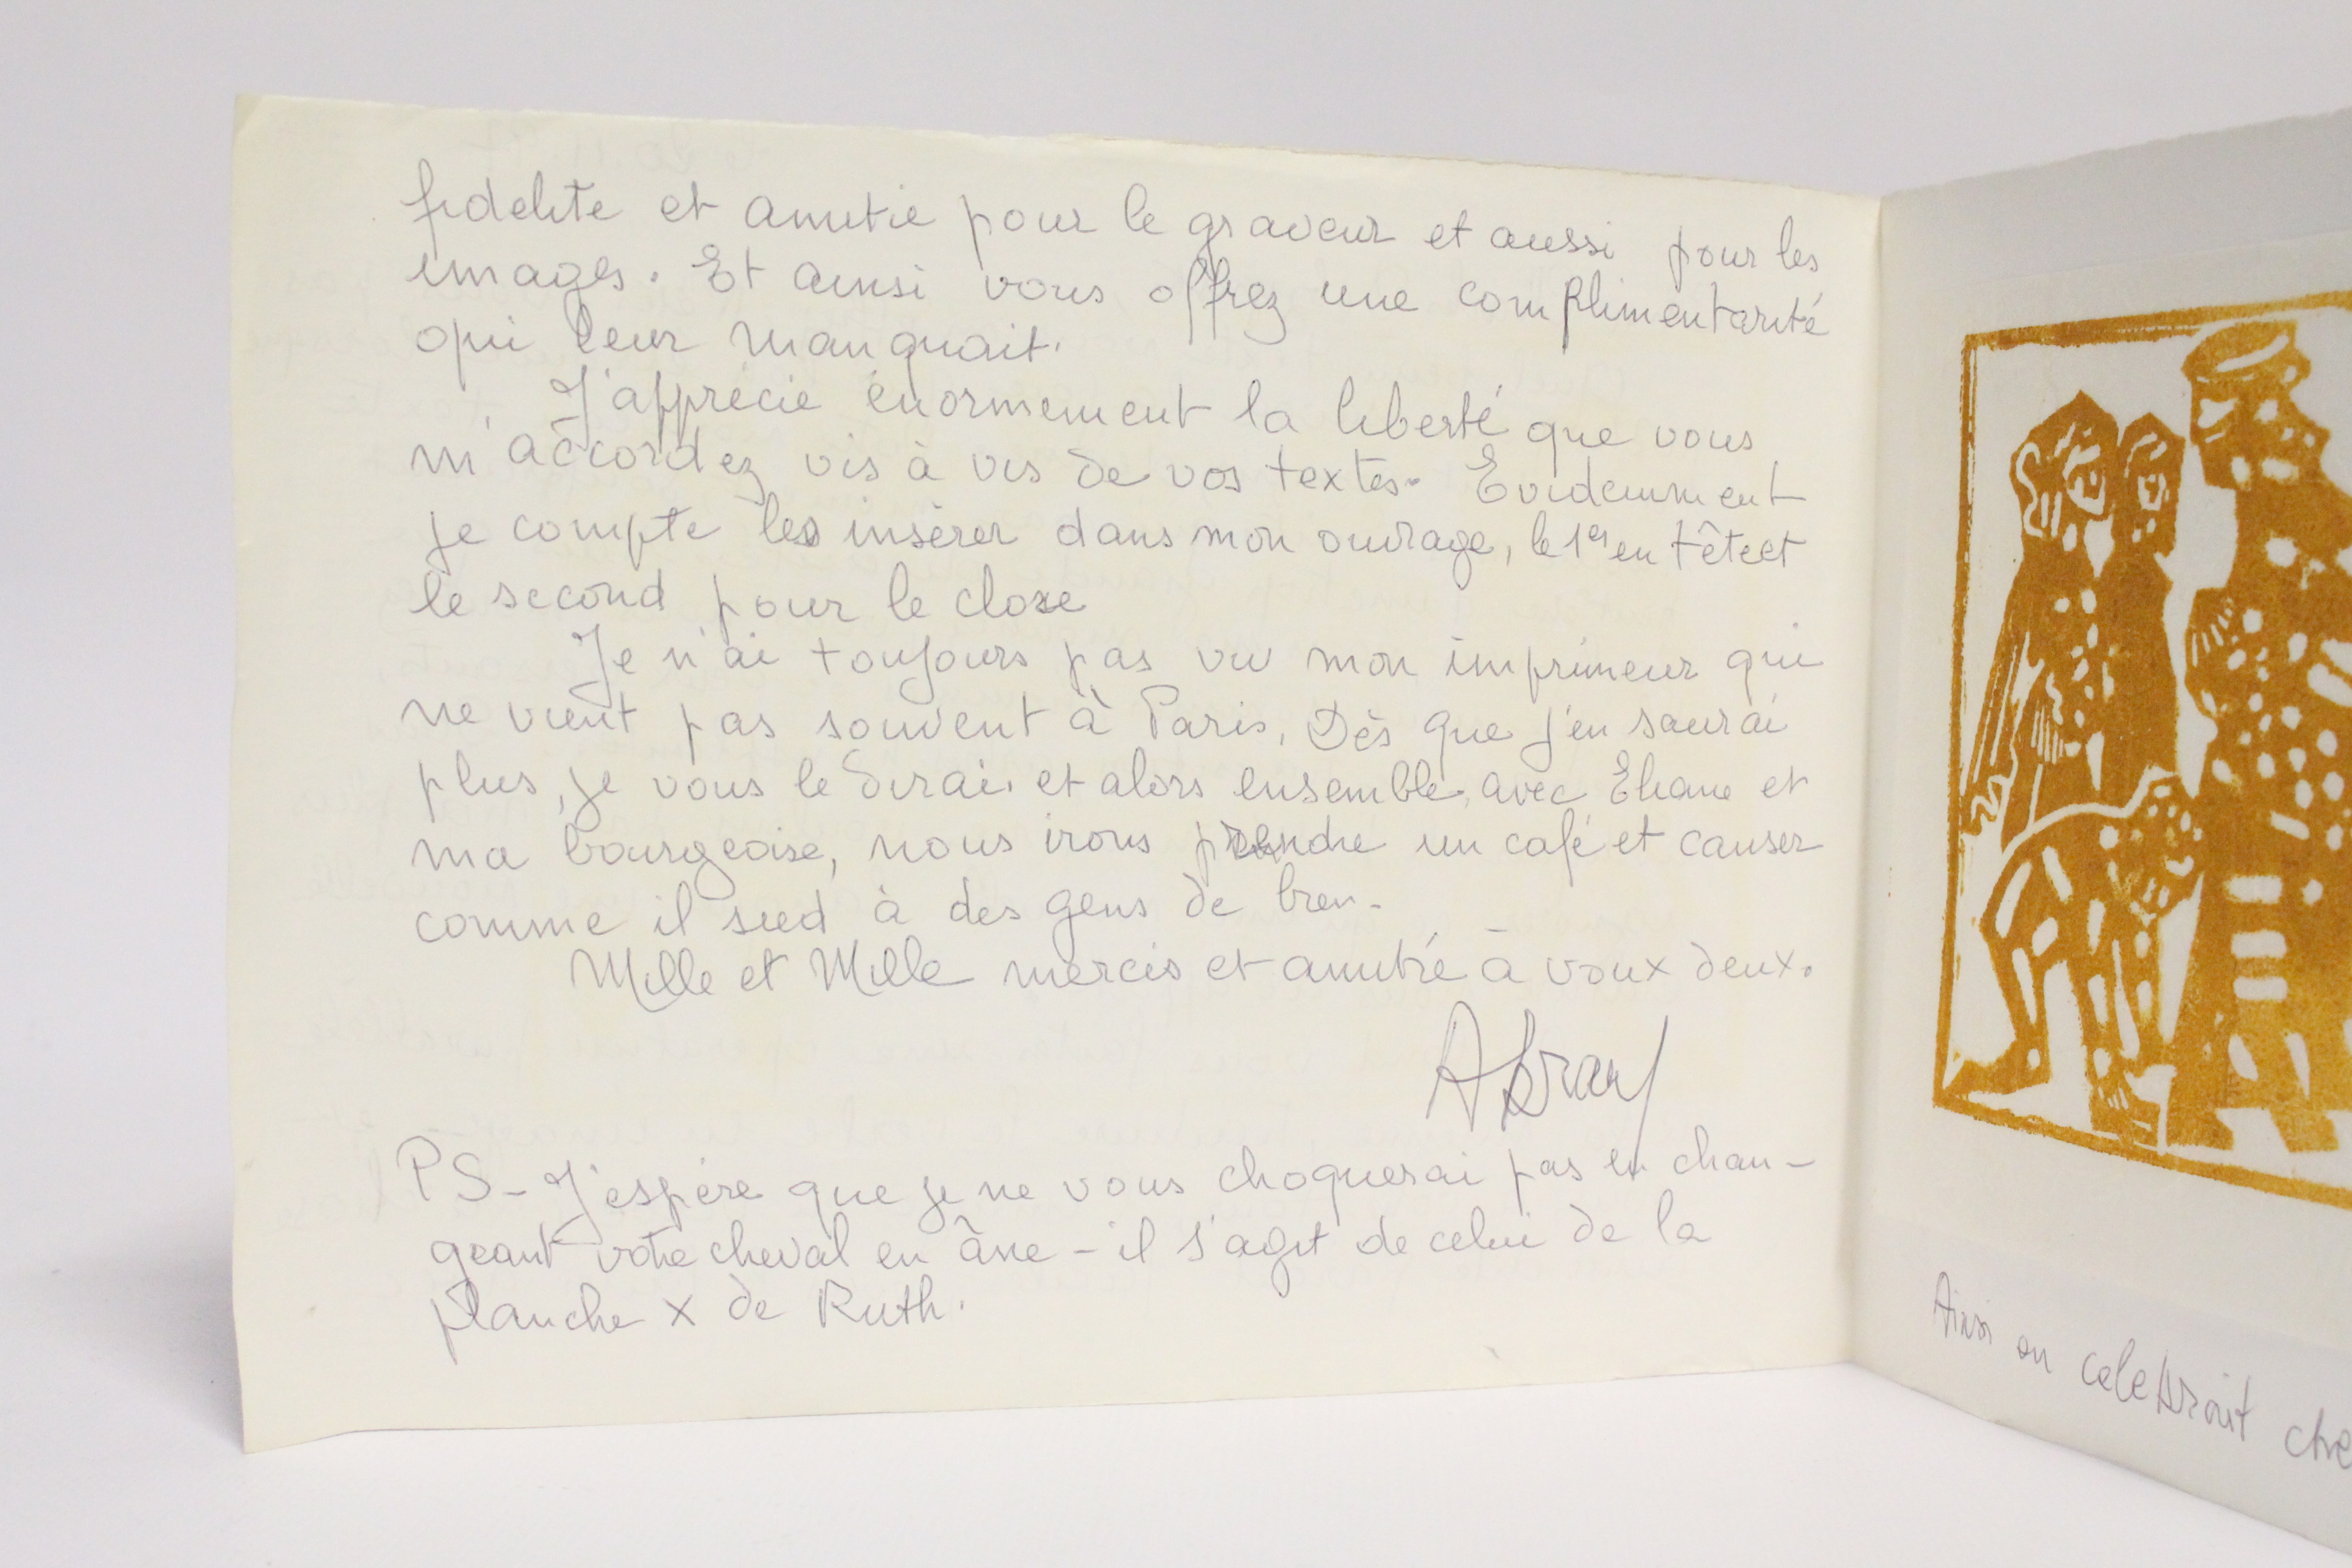 fidelite et amitié pour le graveur et aussi pour les
images. Et ainsi vous offrez une complimentarité
qui leur manquait.
J'apprécie énormement la liberté que vous
m'accordez vis à vis de vos textes. Evidemment
je compte les insérer dans mon ouvrage, le 1er en tête et
le second pour le clore
Je n'ai toujours pas vu mon imprimeur qui
ne vient pas souvent à Paris. Dès que j'en saurai
plus, je vous le dirai. et alors ensemble, avec Eliane et
ma bourgeoise, nous irons prendre un café et causer
comme il sied à des gens de bien.
Mille et Mille mercis et amitié à voux deux.
PS - J'espère que je ne vous choquerai pas en chan-
geant votre cheval en âne - il s'agit de celui de la
planche X de Ruth.
Ainsi on celebrait